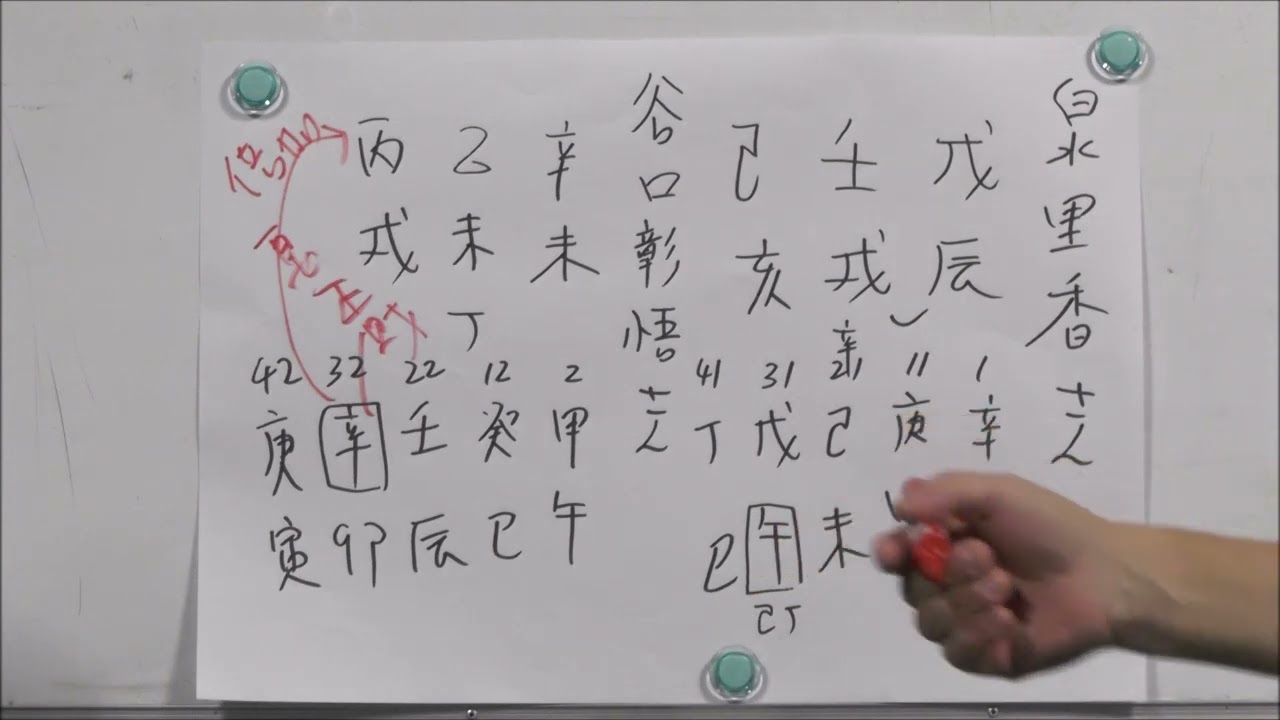 泉里香
谷口彰悟
己 壬 戊
亥 戌 辰
辛
41 31 21 11 1
丁 戊 己 庚 辛
巳 午 未
己丁
丙 乙 辛
戌 未 未
丁
42 32 22 12 2
庚 辛 壬 癸 甲
寅 卯 辰 巳 午